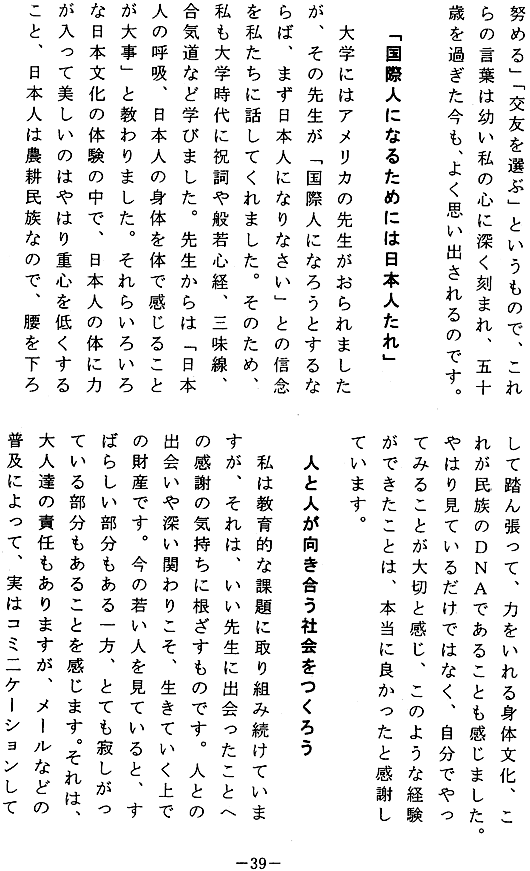 努める」「交友を選ぶ」というもので、これ
らの言葉は幼い私の心に深く刻まれ、五十
歳を過ぎた今も、よく思い出されるのです。
「国際人になるためには日本人たれ」
大学にはアメリカの先生がおられました
が、その先生が「国際人になろうとするな
らば、まず日本人になりなさい」との信念
を私たちに話してくれました。そのため、
私も大学時代に祝詞や般若心経、三味線、
合気道など学びました。先生からは「日本
人の呼吸、日本人の身体を体で感じること
が大事」と教わりました。それらいろいろ
な日本文化の体験の中で、日本人の体に力
が入って美しいのはやはり重心を低くする
こと、日本人は農耕民族なので、腰を下ろ
して踏ん張って、力をいれる身体文化、こ
れが民族のDNAであることも感じました。
やはり見ているだけではなく、自分でやっ
てみることが大切と感じ、このような経験
ができたことは、本当に良かったと感謝し
ています。
人と人が向き合う社会をつくろう
私は教育的な課題に取り組み続けていま
すが、それは、いい先生に出会ったことへ
の感謝の気持ちに根ざすものです。人との
出会いや深い関わりこそ、生きていく上で
の財産です。今の若い人を見ていると、す
ばらしい部分もある一方、とても寂しがっ
ている部分もあることを感じます。それは、
大人達の責任もありますが、メールなどの
普及によって、実はコミニケーションして
—39—